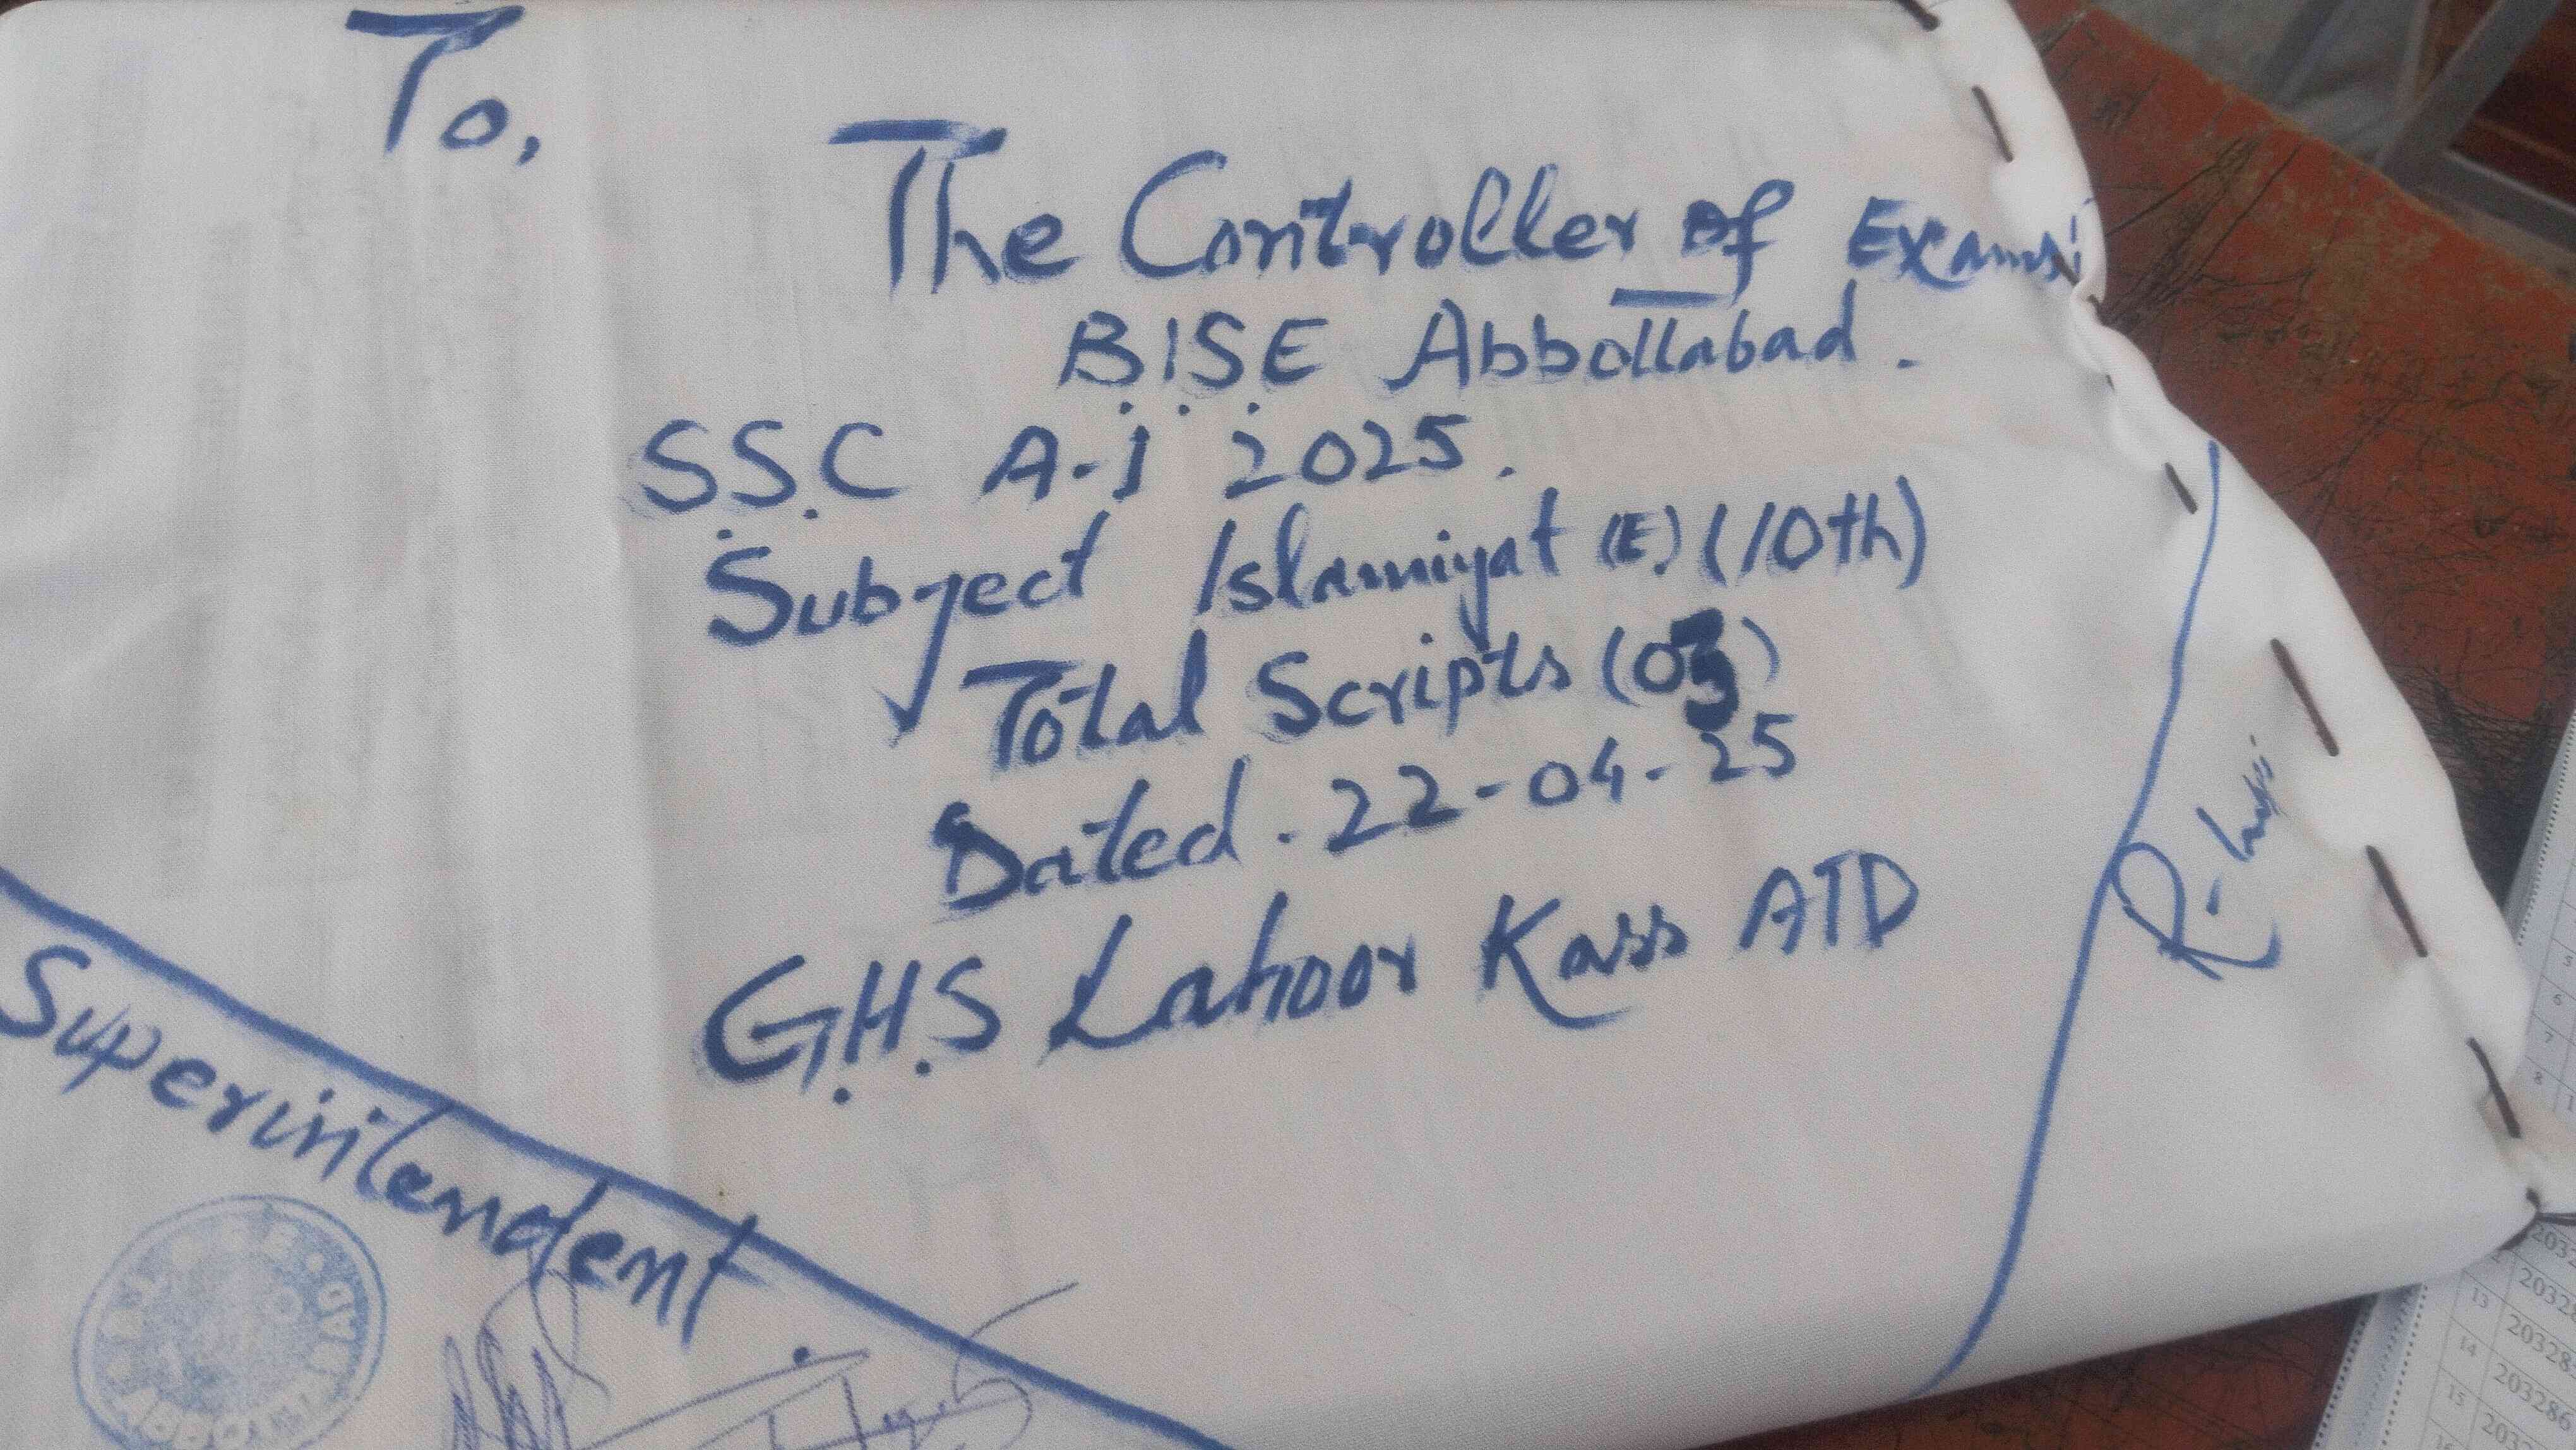 To,
The Controller of Exams:
B.I.S.E Abbottabad.
S.S.C A-I 2025.
Subject Islamiyat (E) (10th)
Total Scripts (03)
Dated. 22-04-25
G.H.S Lahoor Kass ATD
Superintendent
5
6
7
8
13
14
15